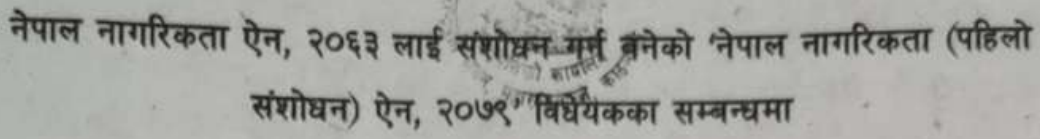 नेपाल नागरिकता ऐन, २०६३ लाई संशोधन गर्न बनेको 'नेपाल नागरिकता (पहिलो
संशोधन) ऐन, २०७९' विधेयकका सम्बन्धमा